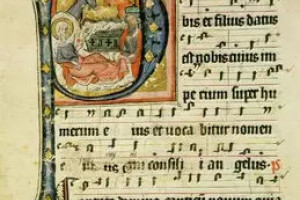 bis et filius datus
est nobis cuius im
pe rium super hu
merum e ius et uoca bitur nomen
e ius consili i an gelus ps